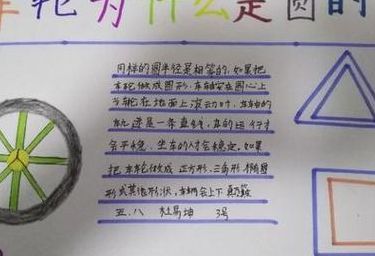 车轮为什么是圆的
同样的圆半径是相等的,如果把
车轮做成圆形,车轴安在圆心上
当车轮在地面上滚动时,车轴的
轨迹是一条直线,车的运行才
会平稳,坐车的人才会稳定,如果
把车轮做成正方形、三角形、椭圆
形或其他形状,车辆会上下颠簸
五.八 杜易坤 3号